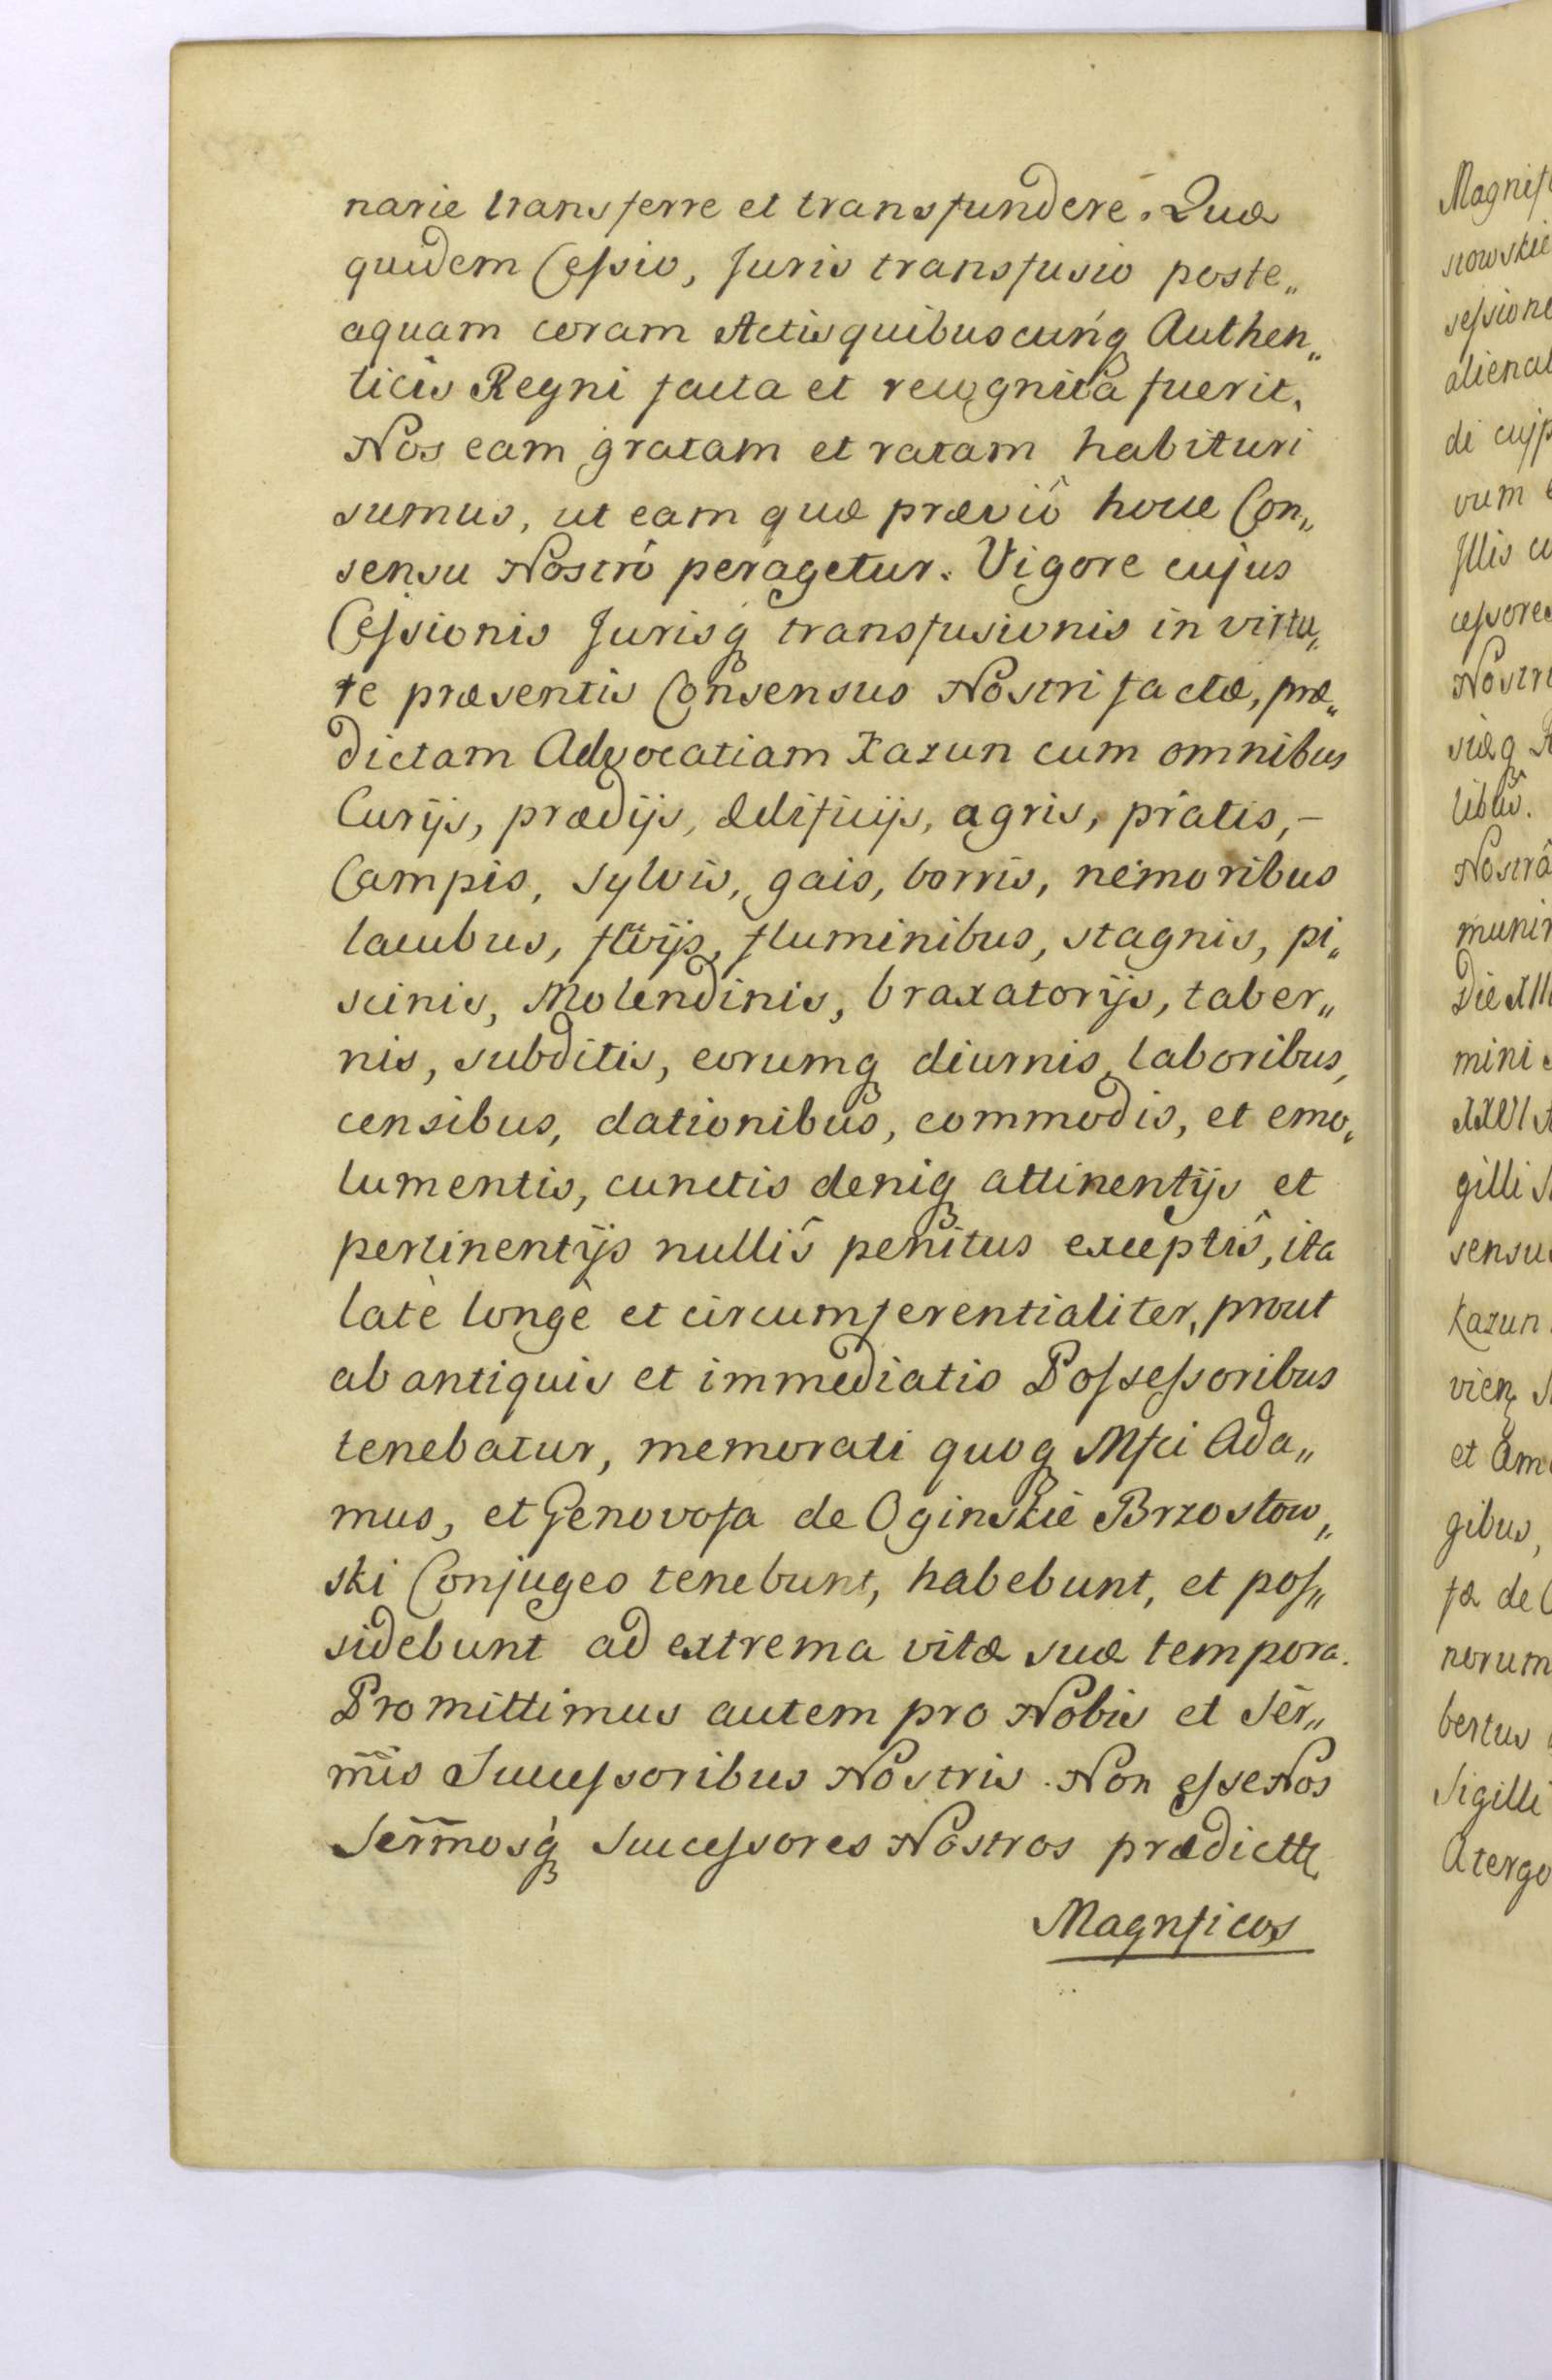 narie transferre et transfundere. Quæ
quidem Cessio, Juris transfusio poste„
aquam coram Actis quibuscunq Authen„
ticis Regni facta et recognita fuerit,
Nos eam gratam et ratam habituri
sumus, ut eam quæ præviô hocce Con„
sensu Nostrô peragetur. Vigore cujus
Cessionis Jurisq transfusionis in virtu„
te præsentis Consensus Nostri factæ, præ„
dictam Advocatiam Kazun cum omnibus
Curijs, prædijs, ædificijs, agris, pratis, –
Campis, sylvis, gais, borris, nemoribus
lacubus, flvijs, fluminibus, stagnis, pi„
scinis, Molendinis, braxatorijs, taber„
nis, subditis, eorumq diurnis, laboribus,
censibus, dationibus, commodis, et emo„
lumentis, cunctis deniq attinentijs et
pertinentijs nullîs penitus exceptîs, ita
latè longè et circumferentialiter, prout
ab antiquis et immediatis Possessoribus
tenebatur, memorati quoq Mfci Ada„
mus, et Genovofa de Oginskie Brzostow„
ski Conjuges tenebunt, habebunt, et pos„
sidebunt ad extrema vitæ suæ tempora.
Promittimus autem pro Nobis et Ser„
mis Successoribus Nostris. Non esse Nos
Sermosq Successores Nostros prædictt
Magnficos
Magnif
stowskie
sessione
alienat
di cujp
vum
Illis cu
cessores
Nostri
viæq R
liblis.
Nostrâ
munir
Die XIII
mini
XXVI
gilli S
sensu
Kazun
vien
et Am
gibus,
fa de O
norum
bertus
Sigilli
Atergo